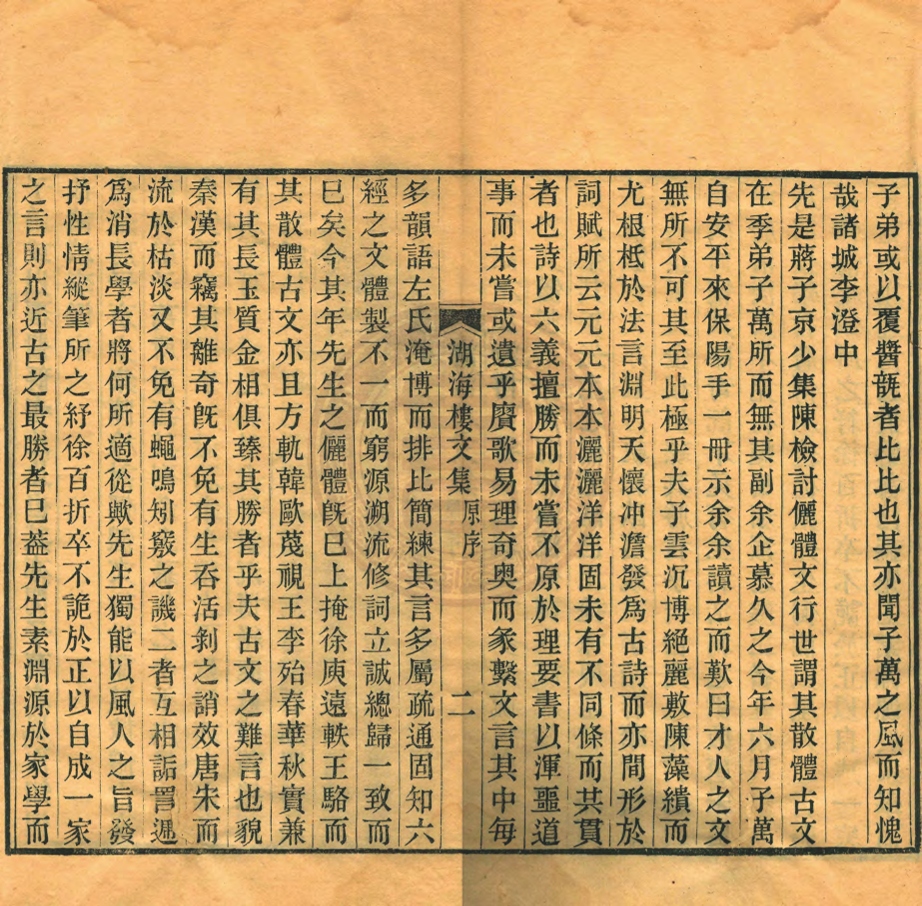 子弟或以覆醬瓿者比比也其亦聞子萬之風而知愧
哉諸城李澄中
先是蔣子京少集陳檢討儷體文行世謂其散體古文
在季弟子萬所而無其副余企慕久之今年六月子萬
自安平來保陽手一冊示余余讀之而歎曰才人之文
無所不可其至此極乎夫子雲沉博絕麗敷陳藻繢而
尤根柢於法言淵明天懷冲澹發爲古詩而亦間形於
詞賦所云元元本本灑灑洋洋固未有不同條而其貫
者也詩以六義擅勝而未嘗不原於理要書以渾噩道
事而未嘗或遺乎賡歌易理奇奥而彖繫文言其中每
湖海樓文集 原序 二
多韻語左氏淹博而排比簡練其言多屬疏通固知六
經之文體製不一而窮源溯流修詞立誠總歸一致而
巳矣今其年先生之儷體旣巳上掩徐庾遠軼王駱而
其散體古文亦且方軌韓歐蔑視王李殆春華秋實兼
有其長玉質金相俱臻其勝者乎夫古文之難言也貌
秦漢而竊其離奇旣不免有生呑活剝之誚效唐宋而
流於枯淡又不免有蠅鳴蚓竅之譏二者互相詬詈遞
爲消長學者將何所適從歟先生獨能以風人之旨發
抒性情縱筆所之紆徐百折卒不詭於正以自成一家
之言則亦近古之最勝者巳葢先生素淵源於家學而